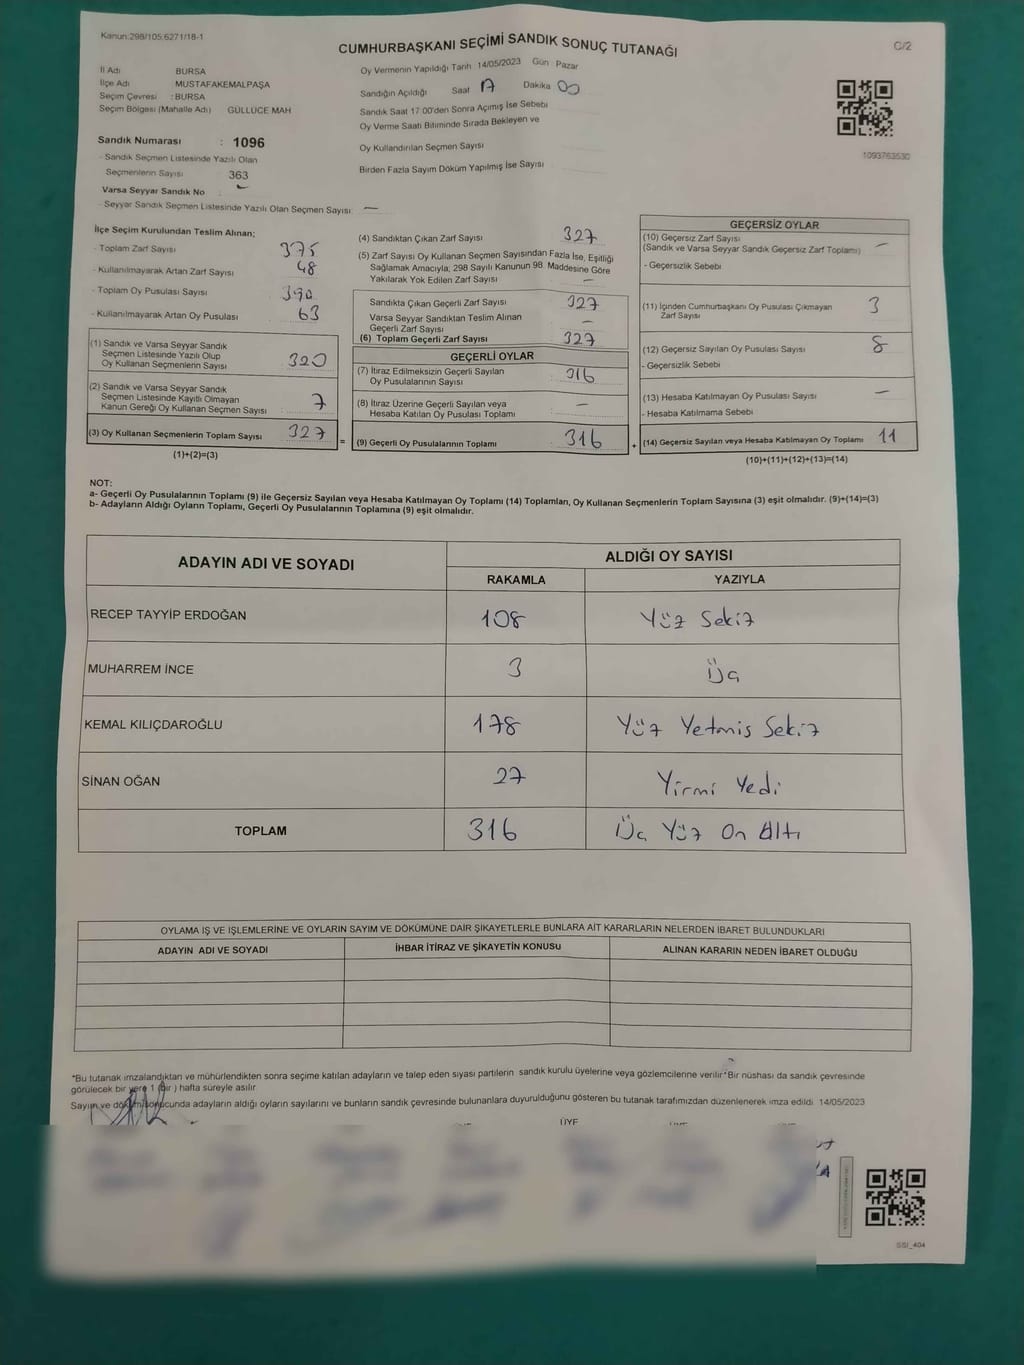 Kanun:298/105;6271/18-1
CUMHURBAŞKANI SEÇİMİ SANDIK SONUÇ TUTANAĞI
C/2
İl Adı BURSA
İlçe Adı MUSTAFAKEMALPAŞA
Seçim Çevresi : BURSA
Seçim Bölgesi (Mahalle Adı) GÜLLÜCE MAH
Sandık Numarası : 1096
- Sandık Seçmen Listesinde Yazılı Olan
Seçmenlerin Sayısı 363
Varsa Seyyar Sandık No -
- Seyyar Sandık Seçmen Listesinde Yazılı Olan Seçmen Sayısı: —
Oy Vermenin Yapıldığı Tarih 14/05/2023 Gün Pazar
Sandığın Açıldığı Saat 17 Dakika 00
Sandık Saat 17:00'den Sonra Açılmış İse Sebebi
Oy Verme Saati Bitiminde Sırada Bekleyen ve
Oy Kullandırılan Seçmen Sayısı
Birden Fazla Sayım Döküm Yapılmış İse Sayısı
1093763530
İlçe Seçim Kurulundan Teslim Alınan;
- Toplam Zarf Sayısı 375
- Kullanılmayarak Artan Zarf Sayısı 48
- Toplam Oy Pusulası Sayısı 390
- Kullanılmayarak Artan Oy Pusulası 63
(1) Sandık ve Varsa Seyyar Sandık
Seçmen Listesinde Yazılı Olup
Oy Kullanan Seçmenlerin Sayısı 320
(2) Sandık ve Varsa Seyyar Sandık
Seçmen Listesinde Kayıtlı Olmayan
Kanun Gereği Oy Kullanan Seçmen Sayısı 7
(3) Oy Kullanan Seçmenlerin Toplam Sayısı 327
=
(1)+(2)=(3)
(4) Sandıktan Çıkan Zarf Sayısı 327
(5) Zarf Sayısı Oy Kullanan Seçmen Sayısından Fazla İse, Eşitliği
Sağlamak Amacıyla; 298 Sayılı Kanunun 98. Maddesine Göre
Yakılarak Yok Edilen Zarf Sayısı —
Sandıkta Çıkan Geçerli Zarf Sayısı 327
Varsa Seyyar Sandıktan Teslim Alınan
Geçerli Zarf Sayısı —
(6) Toplam Geçerli Zarf Sayısı 327
GEÇERLİ OYLAR
(7) İtiraz Edilmeksizin Geçerli Sayılan
Oy Pusulalarının Sayısı 316
(8) İtiraz Üzerine Geçerli Sayılan veya
Hesaba Katılan Oy Pusulası Toplamı —
(9) Geçerli Oy Pusulalarının Toplamı 316
+
GEÇERSİZ OYLAR
(10) Geçersiz Zarf Sayısı —
(Sandık ve Varsa Seyyar Sandık Geçersiz Zarf Toplamı)
- Geçersizlik Sebebi
(11) İçinden Cumhurbaşkanı Oy Pusulası Çıkmayan
Zarf Sayısı 3
(12) Geçersiz Sayılan Oy Pusulası Sayısı 8
- Geçersizlik Sebebi
(13) Hesaba Katılmayan Oy Pusulası Sayısı —
- Hesaba Katılmama Sebebi
(14) Geçersiz Sayılan veya Hesaba Katılmayan Oy Toplamı 11
(10)+(11)+(12)+(13)=(14)
NOT:
a- Geçerli Oy Pusulalarının Toplamı (9) ile Geçersiz Sayılan veya Hesaba Katılmayan Oy Toplamı (14) Toplamları, Oy Kullanan Seçmenlerin Toplam Sayısına (3) eşit olmalıdır. (9)+(14)=(3)
b- Adayların Aldığı Oyların Toplamı, Geçerli Oy Pusulalarının Toplamına (9) eşit olmalıdır.
ADAYIN ADI VE SOYADI ALDIĞI OY SAYISI
RAKAMLA YAZIYLA
RECEP TAYYİP ERDOĞAN 108 Yüz Sekiz
MUHARREM İNCE 3 Üç
KEMAL KILIÇDAROĞLU 178 Yüz Yetmis Sekiz
SİNAN OĞAN 27 Yirmi Yedi
TOPLAM 316 Üç Yüz On Altı
OYLAMA İŞ VE İŞLEMLERİNE VE OYLARIN SAYIM VE DÖKÜMÜNE DAİR ŞİKAYETLERLE BUNLARA AİT KARARLARIN NELERDEN İBARET BULUNDUKLARI
ADAYIN ADI VE SOYADI İHBAR İTİRAZ VE ŞİKAYETİN KONUSU ALINAN KARARIN NEDEN İBARET OLDUĞU
*Bu tutanak imzalandıktan ve mühürlendikten sonra seçime katılan adayların ve talep eden siyasi partilerin sandık kurulu üyelerine veya gözlemcilerine verilir.*Bir nüshası da sandık çevresinde
görülecek bir yere 1 (bir ) hafta süreyle asılır.
Sayım ve döküm sonucunda adayların aldığı oyların sayılarını ve bunların sandık çevresinde bulunanlara duyurulduğunu gösteren bu tutanak tarafımızdan düzenlenerek imza edildi. 14/05/2023
ÜYE
SSİ_404